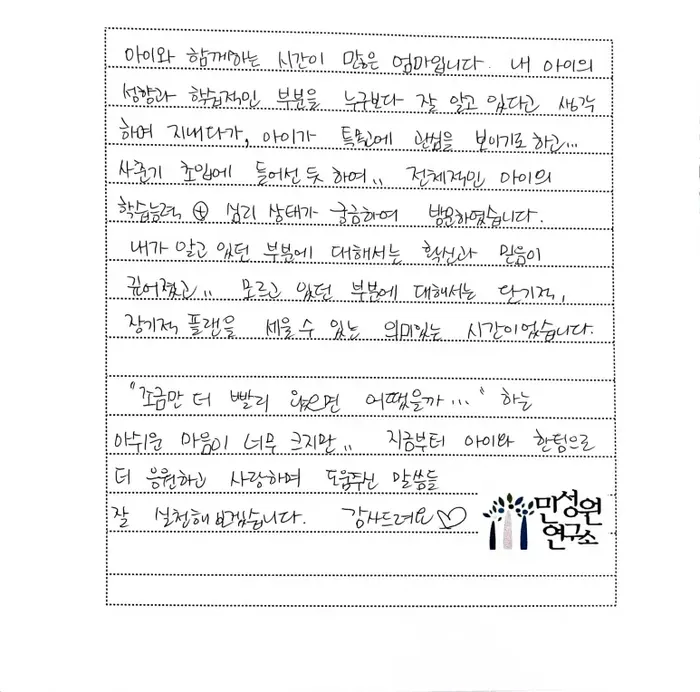 아이와 함께하는 시간이 많은 엄마입니다. 내 아이의
성향과 학습적인 부분을 누구보다 잘 알고 있다고 생각
하며 지내다가, 아이가 특목고에 관심을 보이기도 하고...
사춘기 초입에 들어선 듯 하여,, 전체적인 아이의
학습능력 ⊕ 심리 상태가 궁금하여 방문하였습니다.
내가 알고 있던 부분에 대해서는 확신과 믿음이
깊어졌고,, 모르고 있던 부분에 대해서는 단기적,
장기적 플랜을 세울 수 있는 의미있는 시간이었습니다.
"조금만 더 빨리 왔으면 어땠을까..." 하는
아쉬운 마음이 너무 크지만,, 지금부터 아이와 한팀으로
더 응원하고 사랑하며 도움주신 말씀들
잘 실천해보겠습니다. 감사드려요♡
민성원
연구소